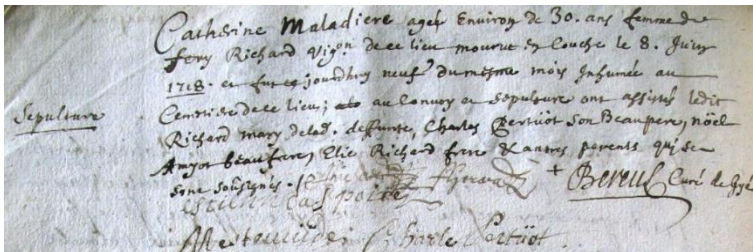 Catherine Maladiere agée Environ de 30. ans femme de
fery Richard Vig.on de ce lieu mourut En Couche le 8. Juin
1718. et fut ce jourdhuy neuf du mesme mois Inhumée au
Sepulture
Cemetiere de ce lieu; au Convoy et sepulture ont assistés ledit
Richard mary de lad. deffunte, Charles Bertüot son Beaupere, nöel
Amyot beaufrere, Elie Richard frere & autres parents qui se
sont soussignés.
Bereul Curé de
Charle Bertüot